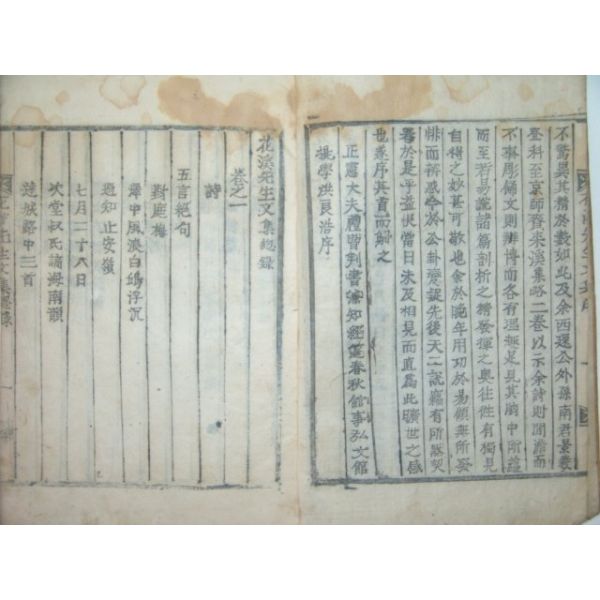 不驚異其精於數如此及余西還公外孫南君景羲
登科至京師齎朱溪集略二卷以示余詩則閒澹而
不事彫餙文則辨博而各有理趣足見其胸中所蘊
而至若易說諸篇剖析之精發揮之奧往徃有獨見
自得之妙甚可敬也余於晩年用功於易頗無所發
悱而辨惑於公卦變說先後天二說竊有所黙契
者於是乎益恨當日未及相見而直爲此曠世之感
也遂序其實而歸之
正憲大夫禮曹判書兼知經筵春秋館事弘文館
提學洪良浩序
花溪先生文集總錄
卷之一
詩
五言絶句
對鹿梅
舟中風浪白鷗浮沉
過知止安嶺
七月二十八日
次堂叔氏謫海南韻
達城路中二首
花溪先生文集總錄